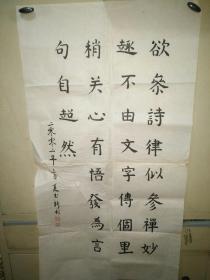 欲叅詩律似參禪妙
趣不由文字傳個里
稍关心有悟發為言
句自超然
二零零二年